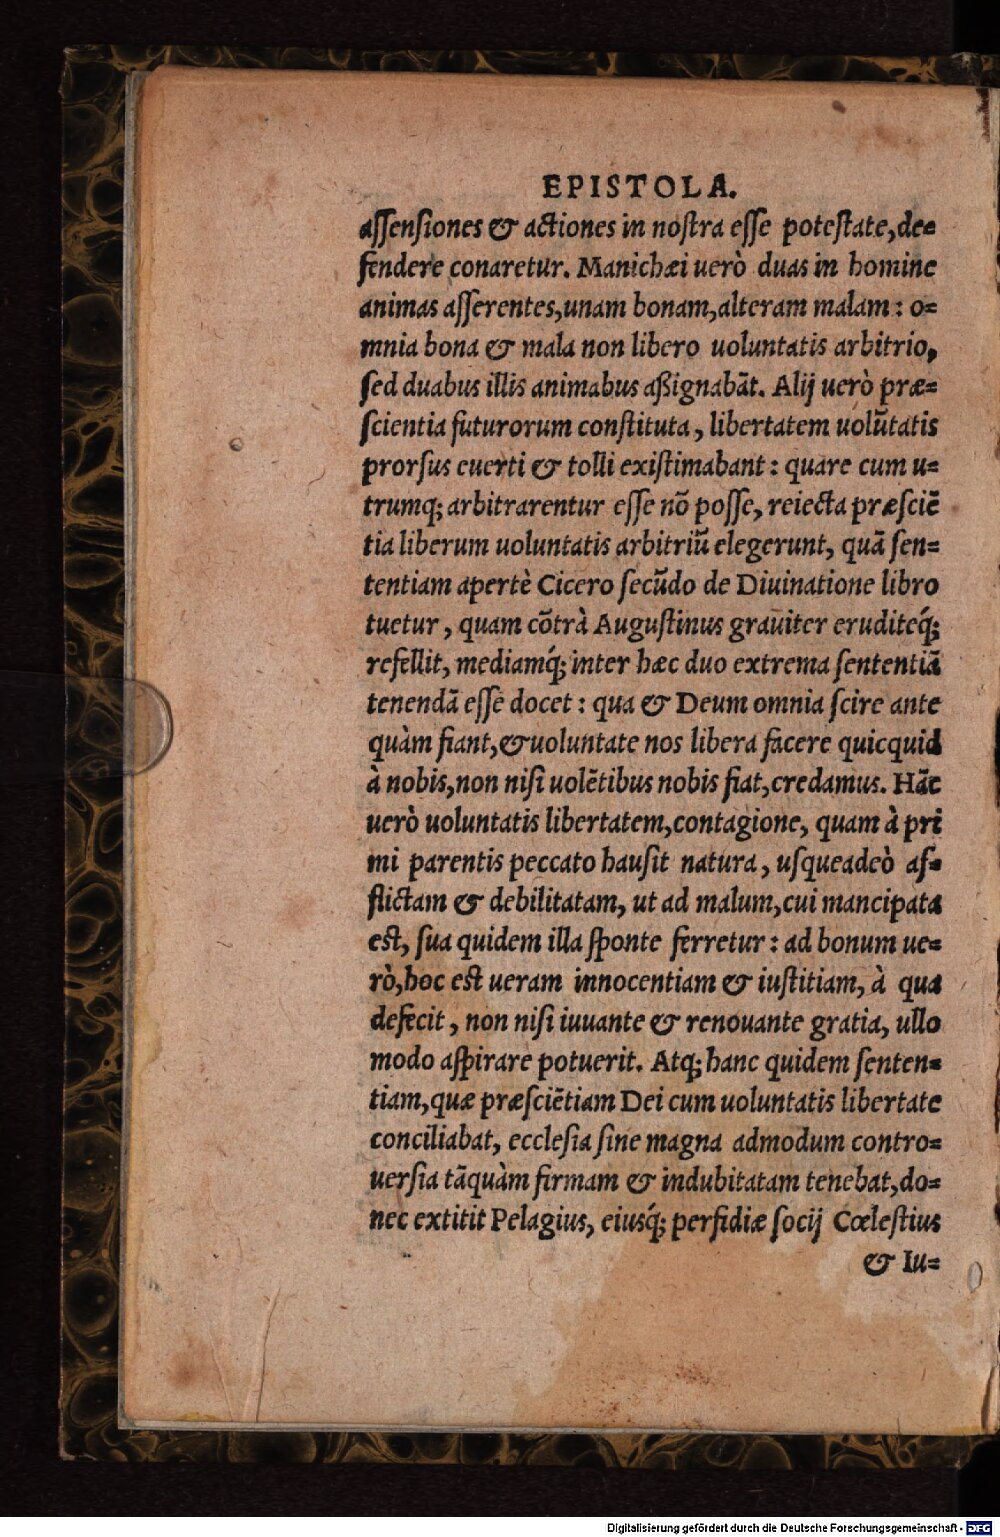 EPISTOLA.
aſſenſiones & actiones in noſtra eſſe poteſtate, de=
fendere conaretur. Manichæi uerò duas in homine
animas aſſerentes, unam bonam, alteram malam: o=
mnia bona & mala non libero uoluntatis arbitrio,
ſed duabus illis animabus aßignabãt. Alij uerò præ=
ſcientia futurorum conſtituta, libertatem uolũtatis
prorſus euerti & tolli exiſtimabant: quare cum u=
trumq; arbitrarentur eſſe nõ poſſe, reiecta præſciẽ
tia liberum uoluntatis arbitriũ elegerunt, quã ſen=
tentiam apertè Cicero ſecũdo de Diuinatione libro
tuetur, quam cõtrà Auguſtinus grauiter eruditeq́;
refellit, mediamq́; inter hæc duo extrema ſententiã
tenendã eſſe docet: qua & Deum omnia ſcire ante
quàm fiant, & uoluntate nos libera facere quicquid
à nobis, non niſi uolẽtibus nobis fiat, credamus. Hãc
uerò uoluntatis libertatem, contagione, quam à pri
mi parentis peccato hauſit natura, uſqueadeò af=
flictam & debilitatam, ut ad malum, cui mancipata
eſt, ſua quidem illa ſponte ferretur: ad bonum ue=
rò, hoc eſt ueram innocentiam & iuſtitiam, à qua
defecit, non niſi iuuante & renouante gratia, ullo
modo aſpirare potuerit. Atq; hanc quidem ſenten=
tiam, quæ præſciẽtiam Dei cum uoluntatis libertate
conciliabat, eccleſia ſine magna admodum contro=
uerſia tãquàm firmam & indubitatam tenebat, do=
nec extitit Pelagius, eiusq́; perfidiæ ſocij Cœleſtius
& Iu=
Digitalisierung gefördert durch die Deutsche Forschungsgemeinschaft - DFG